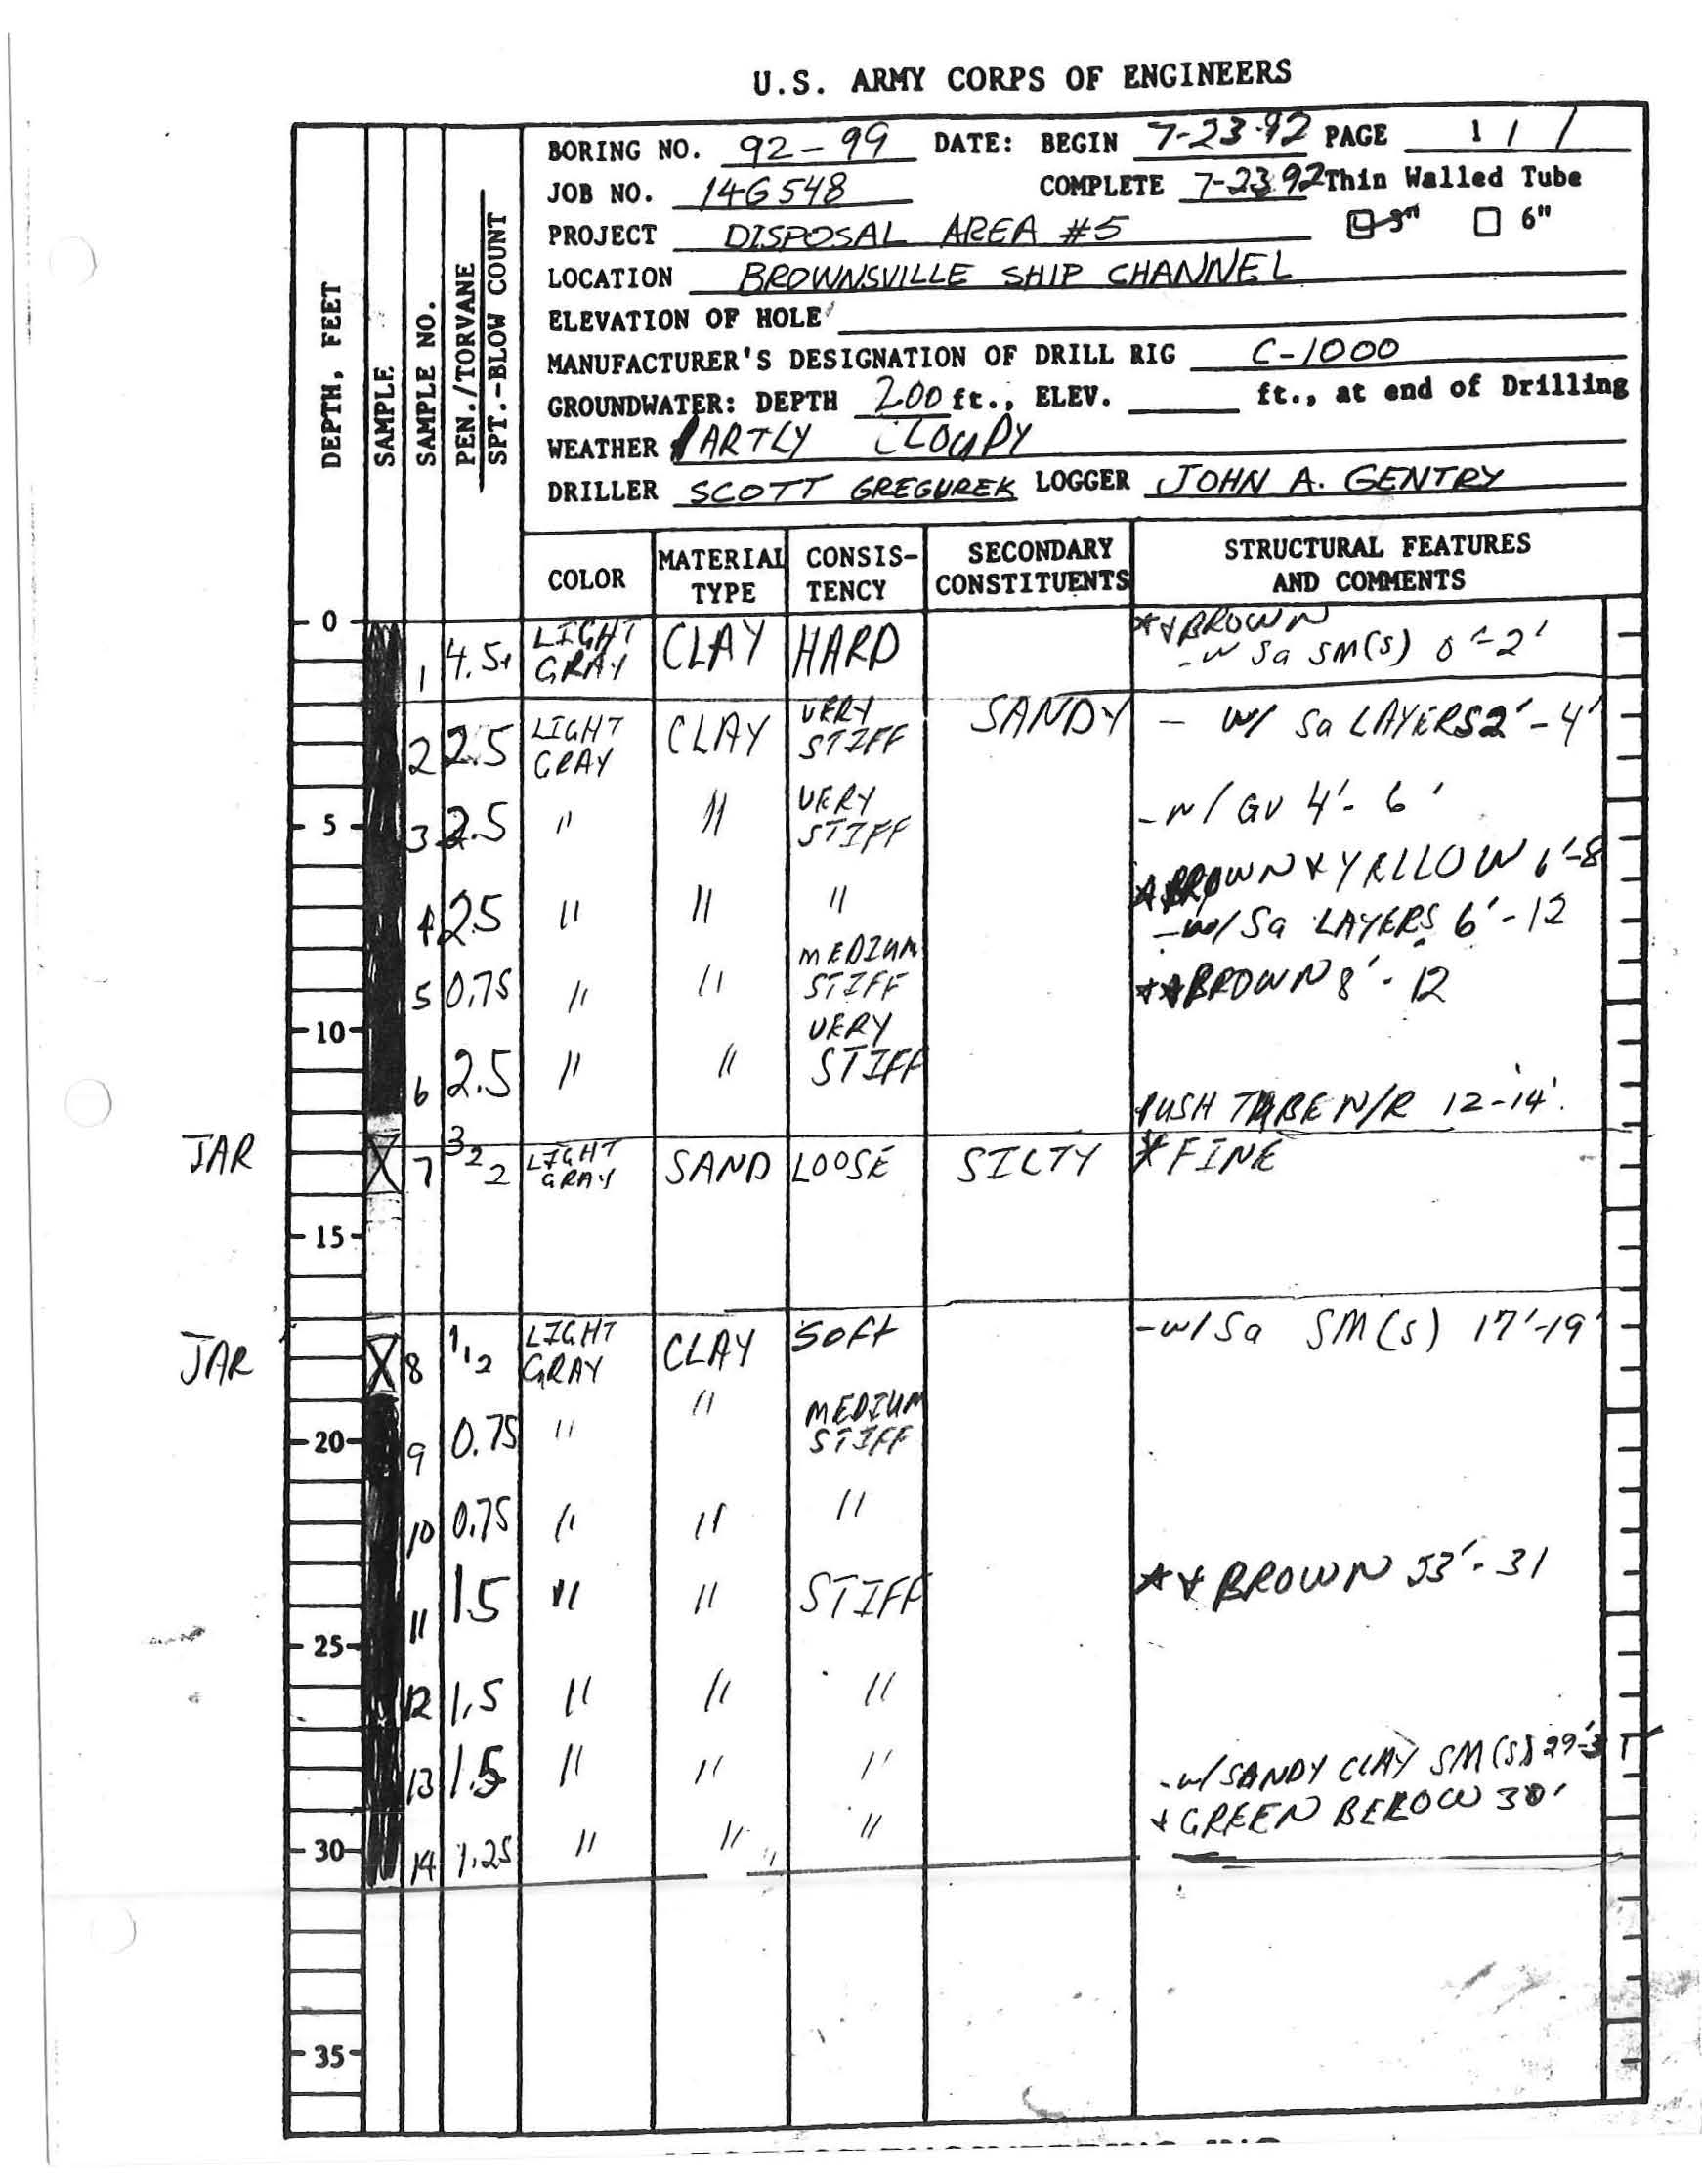 U.S. ARMY CORPS OF ENGINEERS
BORING NO. 92-99 DATE: BEGIN 7-23-92 PAGE 1 / 1
JOB NO. 14G548 COMPLETE 7-23.92 Thin Walled Tube
PROJECT DISPOSAL AREA #5 3" 6"
LOCATION BROWNSVILLE SHIP CHANNEL
ELEVATION OF HOLE
MANUFACTURER'S DESIGNATION OF DRILL RIG C-1000
GROUNDWATER: DEPTH 200 ft., ELEV. ft., at end of Drilling
WEATHER PARTLY CLOUDY
DRILLER SCOTT GREGUREK LOGGER JOHN A. GENTRY
DEPTH, FEET
SAMPLE
SAMPLE NO.
PEN./TORVANE
SPT.-BLOW COUNT
COLOR MATERIAL TYPE CONSIS-TENCY SECONDARY CONSTITUENTS STRUCTURAL FEATURES AND COMMENTS
0
**BROWN
1 4.5+ LIGHT GRAY CLAY HARD -w Sa SM(S) 0'-2'
2 2.5 LIGHT GRAY CLAY VERY STIFF SANDY - W/ Sa LAYERS 2'-4'
5 3 2.5 " " VERY STIFF -w/ GV 4'-6'
*BROWN & YELLOW 6'-8
4 2.5 " " " -w/ Sa LAYERS 6'-12
5 0.75 " " MEDIUM STIFF **BROWN 8'-12
10
6 2.5 " " VERY STIFF
PUSH TUBE N/R 12-14'.
JAR 7 3 2 2 LIGHT GRAY SAND LOOSE SILTY *FINE
15
JAR 8 1 1 2 LIGHT GRAY CLAY SOFT -w/ Sa SM(S) 17'-19'
20 9 0.75 " " MEDIUM STIFF
10 0.75 " " "
11 1.5 " " STIFF ** BROWN 23'-31
25
12 1.5 " " "
13 1.5 " " " -w/ SANDY CLAY SM(S) 29'-31'
* GREEN BELOW 30'
30 14 1.25 " " "
35